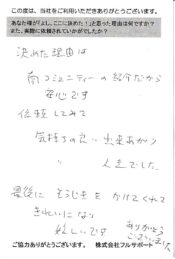 この度は、当社をご利用いただきありがとうございます。
あなた様が「よし、ここに決めた!」と思った理由は何ですか?
また、実際に依頼されていかがでしたか?
決めた理由は
コミュニティーの紹介だから
安心です
依頼してみて
気持ちの良い 出来あがり
〃 人達でした。
最後に そうじきを かけてくれて
きれいになり
嬉しいです
ありがとう
ございました
ご協力ありがとうございます。 株式会社フルサポート